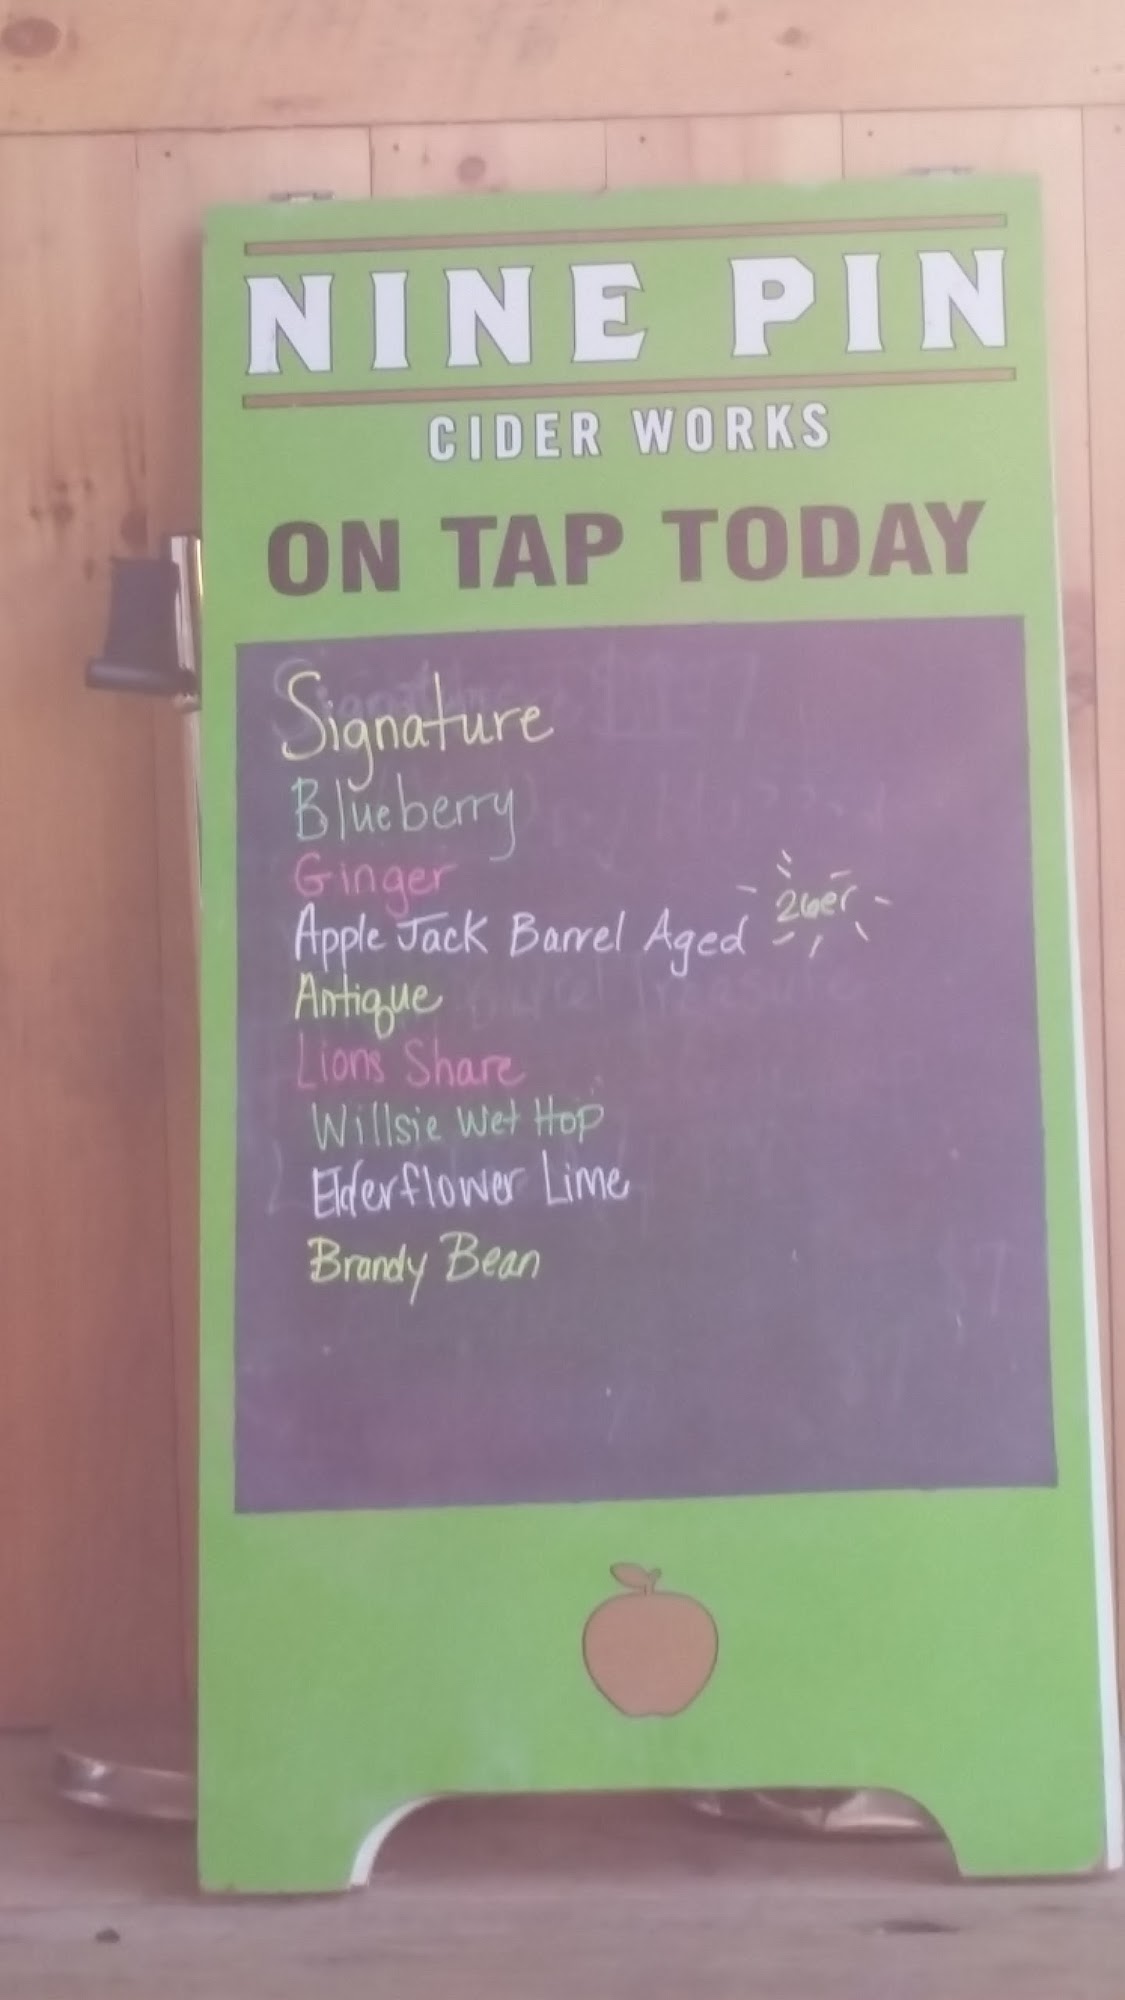 NINE PIN
CIDER WORKS
ON TAP TODAY
Signature
Blueberry
Ginger
Apple Jack Barrel Aged 26er
Antique
Lions Share
Willsie Wet Hop
Elderflower Lime
Brandy Bean